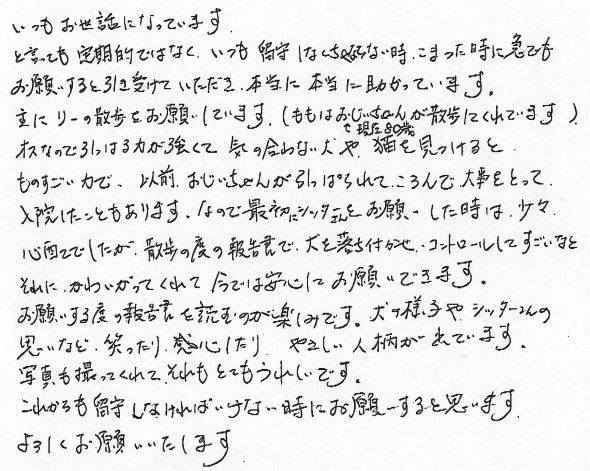 いつもお世話になっています。
と言っても定期的ではなく、いつも留守しなくちゃならない時、こまった時に急でも
お願いすると引き受けていただき、本当に本当に助かっています。
主にリーの散歩をお願いしています。(ももはおじいちゃんが散歩してくれています)
で現在80歳
オスなので引っぱる力が強くて気の合わない犬や、猫を見つけると
ものすごい力で、以前、おじいちゃんが引っぱられて、ころんで、大事をとって、
入院したこともあります。なので最初にシッターさんをお願いした時は、少々
心配でしたが、散歩の度の報告書で、犬を落ち付かせ、コントロールしてすごいなと
それに、かわいがってくれて今では安心してお願いできます。
お願いする度の報告書を読むのが楽しみです。犬の様子やシッターさんの
思いなど、笑ったり、感心したり、やさしい人柄が出ています。
写真も撮ってくれて、それもとてもうれしいです。
これからも留守しなければいけない時にお願いすると思います。
よろしくお願いいたします